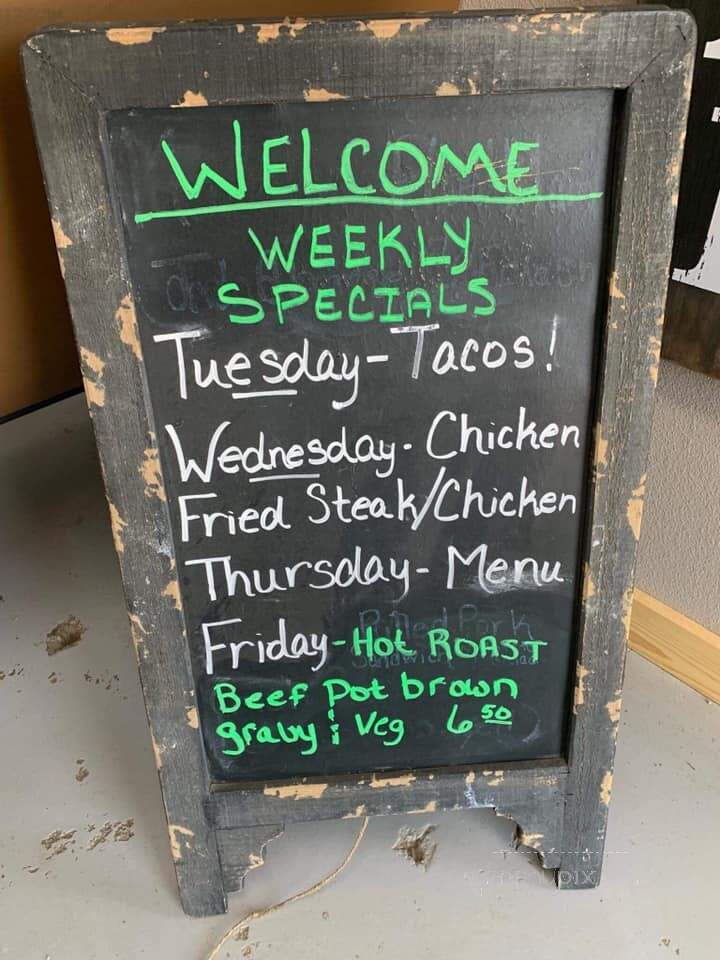 WELCOME
WEEKLY
SPECIALS
Tuesday - Tacos!
Wednesday - Chicken
Fried Steak/Chicken
Thursday - Menu
Pulled Pork
Friday - Hot ROAST
Sandwich
Beef Pot brown
graby & Veg 6 50